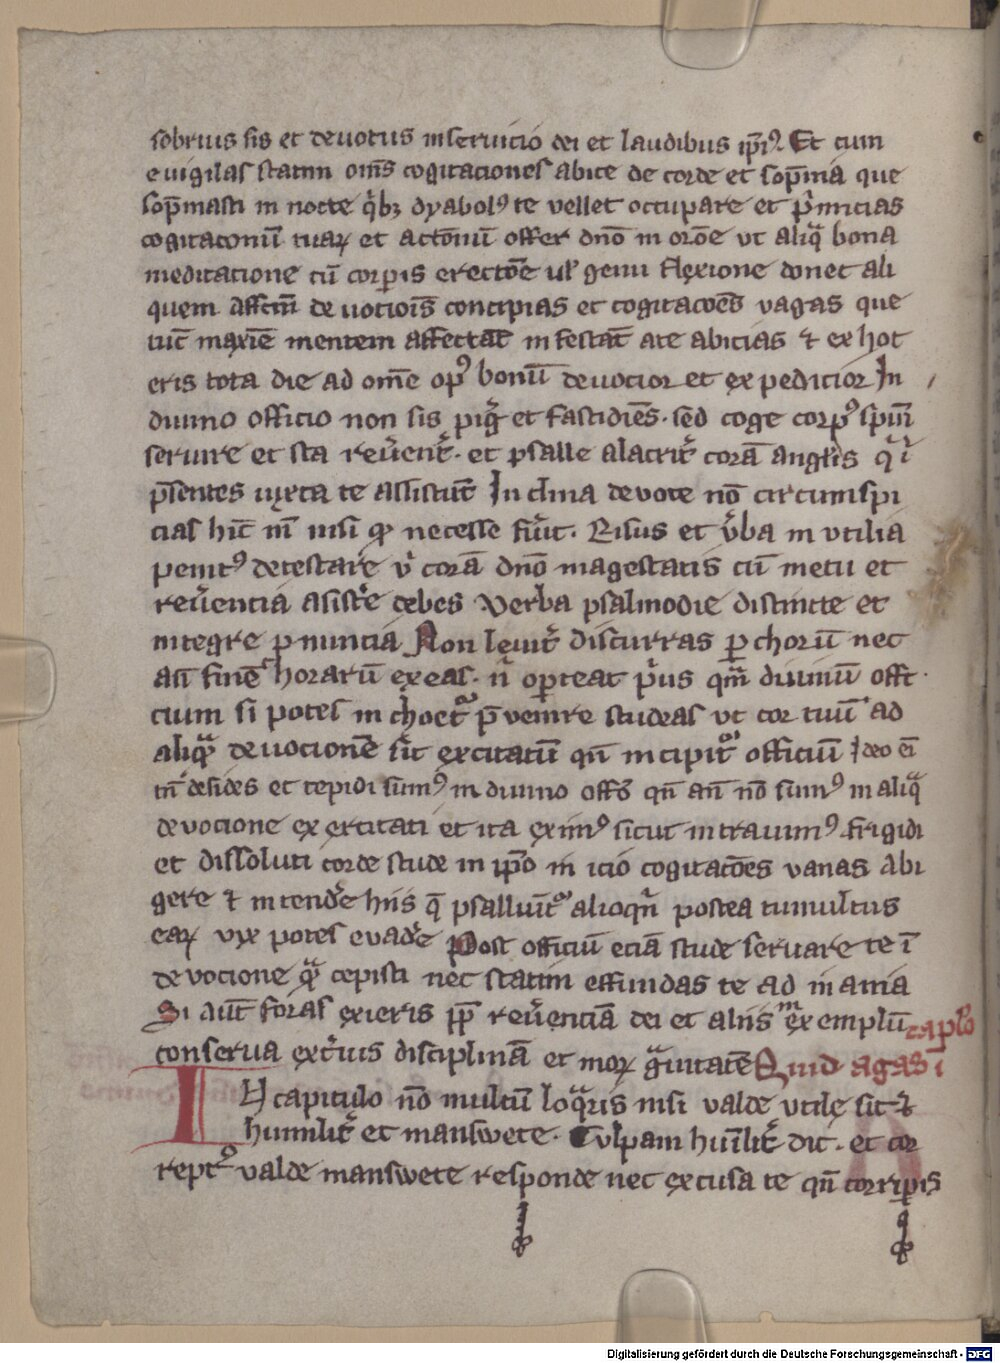 sobrius sis et deuotus in seruicio dei et laudibus ip̄iꝰ. Et cum
euigilas statim om̄s cogitaciones abice de corde et sop̄nia que
sop̄niasti in nocte q̄bꝫ dyabolꝰ te vellet occupare et p̄micias
cogitaconū tuaꝝ et actonū offer dn̄o in orōe vt aliq̄ bona
meditacione cū corꝑis erectōe ul̓ genu flexione donet ali
quem affcm̄ de uotiois̄ concipias et cogitacoēs vagas que
tūc maxīe mentem affectāt infestāt a te abicias ⁊ ex hoc
eris tota die ad om̄e opꝰ bonū deuocior et expedicior In
diuino officio non sis pig̓ et fastidiēs. sed coge corpꝰ sp̄ui
seruire et sta reu̓ent̓. et psalle alacrit̓ corā angl̓is q̓ i
p̄sentes iuxta te assistūt In clina deuote nō circumspi
cias hīc in̄ nisi ꝙ necesse fu̓it. Risus et v̓ba in vtilia
penitꝰ detestare v̓ corā dn̄o magestatis cū metu et
reu̓encia asist̓e debes Verba psalmodie distincte et
integre ꝓnuncia Non leuit̓ discurras ꝑ chorū nec
an̄ finē horarū exeas. n̄ oꝑteat p̓us qm̄ diuinū offi
cium si potes in choꝝ p̄uenire studeas vt cor tuū ad
aliq̄ deuocionē sit excitatū qn̄ incipit᷑ officiū Ideo ei̅
tn̄ desides et tepidi sumꝰ in diuino offō qn̄ an̄ nō sumꝰ in aliq̄
deuocione exercitati et ita eximꝰ sicut intrauimꝰ. frigidi
et dissoluti corde stude in ip̄o in icio cogitacōes vanas abi
gere ⁊ intend̓e hiis q̄ psallunt᷑ alioqn̄ postea tumultus
eaꝝ vix potes euad̓e Post officiū eciā stude seruare te ī
deuocione q̄ cepisti nec statim effundas te ad inania
Si aūt foras exieris ꝓp̄ reu̓enciā dei et aliis ī exemplū caplo
conserua ext̓ius disciplinā et moꝝ g̓uitatē Quid agas ī
IN capitulo nō multū loq̄ris nisi valde vtile sit ⁊
humilit̓ et manswete. Culpam hūilit̓ dic. et cor
rept᷑ valde manswete responde nec excusa te qn̄ corriꝑis
Digitalisierung gefördert durch die Deutsche Forschungsgemeinschaft - DFG